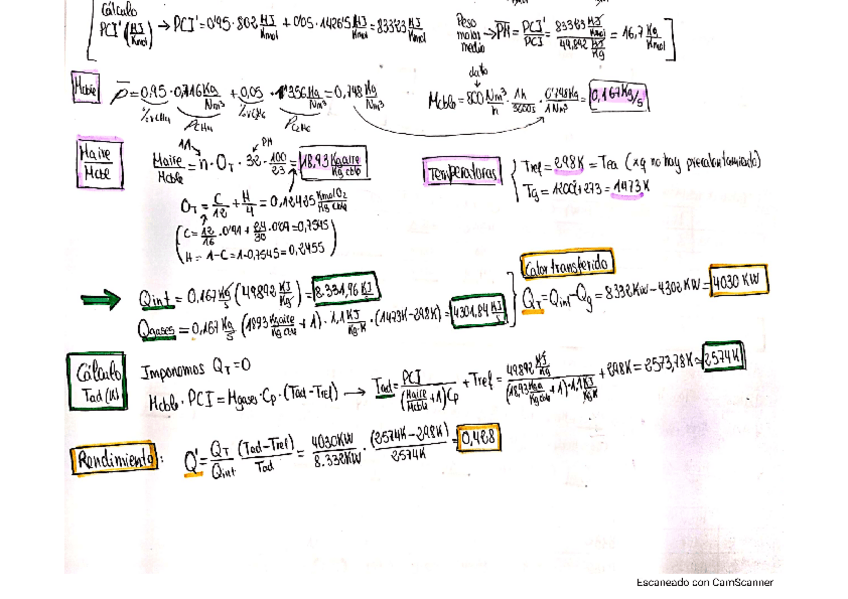 Cálculo
PCI' (KJ/Kmol) → PCI' = 0'95 · 802 MJ/Kmol + 0'05 · 1426'5 MJ/Kmol = 833'23 MJ/Kmol
Peso molar medio → PM = PCI'/PCI = 83323 KJ/Kmol / 49.892 KJ/Kg = 16,7 Kg/Kmol
Mcble ρ = 0,95 · 0,716 Kg/Nm³ + 0,05 · 1'356 Kg/Nm³ = 0,748 Kg/Nm³
%VCH4 ρCH4 ρC2H6
dato
Mcble = 800 Nm³/h · 1h/3600s · 0'748Kg/1Nm³ = 0,167Kg/s
Maire/Mcble
1'1 PM
Maire/Mcble = n · OT · 32 · 100/23 = 18,93 Kg aire/Kg cble
OT = C/12 + H/4 = 0,12425 KmolO2/Kg cble
C = 12/16 · 0'91 + 24/30 · 0'09 = 0,7545
H = 1-C = 1-0,7545 = 0,2455
Temperaturas
Tref = 298K = Tea (xq no hay precalentamiento)
Tg = 1200+273 = 1473K
Qint = 0,167 Kg/s (49892 KJ/Kg) = 8.331,96 KJ
Qgases = 0,167 Kg/s (18'93 Kg aire/Kg cble + 1) · 1,1 KJ/Kg·K · (1473K-298K) = 4301,84 KJ/s
Calor transferido
QT = Qint - Qg = 8.332Kw - 4302Kw = 4030 KW
Cálculo Tad (K)
Imponemos QT = 0
Mcble · PCI = Mgases · Cp · (Tad-Tref) → Tad = PCI/((Maire/Mcble + 1)Cp) + Tref = 49892 KJ/Kg / ((18,93 Kga/Kg cble + 1) · 1,1 KJ/Kg·K) + 298K = 2573,78K ≈ 2574K
Rendimiento: Q' = QT/Qint (Tad-Tref)/Tad = 4030KW/8.332KW · (2574K-298K)/2574K = 0,428
Escaneado con CamScanner